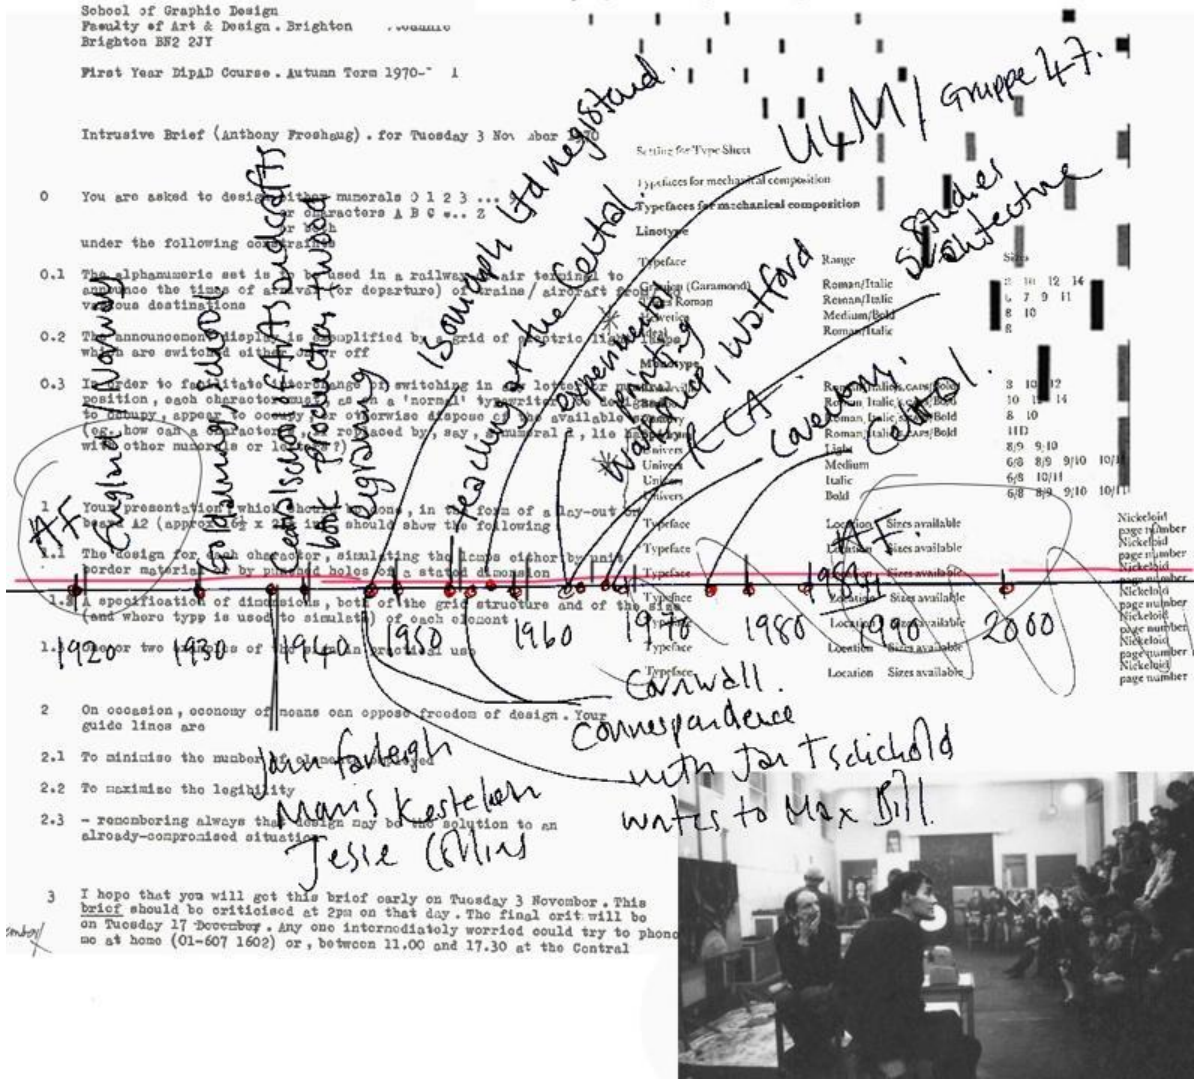 School of Graphic Design
Faculty of Art & Design . Brighton
Brighton BN2 2JY
First Year DipAD Course . Autumn Term 1970- 1
Intrusive Brief (Anthony Froshaug) . for Tuesday 3 Nov mber 1970
0 You are asked to design either numerals 0 1 2 3 ...
or characters A B C ... Z
or both
under the following constraints
0.1 The alphanumeric set is to be used in a railway air terminal to
announce the times of arrival (or departure) of trains/ aircraft from
various destinations
0.2 The announcement display is exemplified by a grid of electric light
which are switched either on or off
0.3 In order to facilitate interchange of switching in any letter or numeral
position, each character must, as on a 'normal' typewriter
to occupy, appear to occupy or otherwise dispose of the available
(eg. how can a character replaced by, say, numeral 1, lie
with other numerals or letters?)
1 Your presentation, which should be done, in the form of a lay-out on
board A2 (approx 16½ x in) should show the following
1.1 The design for each character, simulating the lamps either by unit
border material or by punched holes of a stated dimension
A specification of dimensions, both of the grid structure and of the size
(and where type is used to simulate) of each element
One or two examples of the in practical use
2 On occasion, economy of means can oppose freedom of design. Your
guide lines are
2.1 To minimise the number of elements employed
2.2 To maximise the legibility
2.3 - remembering always that design may be the solution to an
already-compromised situation
3 I hope that you will get this brief early on Tuesday 3 November. This
brief should be criticised at 2pm on that day. The final crit will be
on Tuesday 17 December. Any one intermediately worried could try to phone
me at home (01-607 1602) or, between 11.00 and 17.30 at the Central
Setting for Type Sheet
Typefaces for mechanical composition
Typefaces for mechanical composition
Linotype
Typeface Range Sizes
Granjon (Garamond) Roman/Italic 8 10 12 14
Times Roman Roman/Italic 6 7 9 11
Helvetica Medium/Bold 8 10
Ideal Roman/Italic 8
Monotype
Roman/Italic/s.caps/Bold 8 10 12
Roman/Italic/s.caps/Bold 10 14
Roman/Italic/s.caps/Bold 8 10
Roman/Italic/s.caps/Bold 11D
Univers Light 8/9 9/10
Univers Medium 6/8 8/9 9/10 10/11
Univers Italic 6/8 10/11
Univers Bold 6/8 8/9 9/10 10/11
Typeface Location Sizes available Nickeloid page number
Typeface Location Sizes available Nickeloid page number
Typeface Location Sizes available Nickeloid page number
Typeface Location Sizes available Nickeloid page number
Typeface Location Sizes available Nickeloid page number
Typeface Location Sizes available Nickeloid page number
Typeface Location Sizes available Nickeloid page number
AF
England/Norway
central school of A+S
book production + wood
engraving
Isomorph Ltd registard.
teaching at the Central.
experimental
printing
workshop, Watford
RCA.
ULM / Gruppe 47.
studies
architecture
Coventry.
Central.
A.F.
1984
1920 1930 1940 1950 1960 1970 1980 1990 2000
Cornwall.
correspondence
with Jan Tschichold
writes to Max Bill.
John Farleigh
Maris Kestelman
Jesse Collins